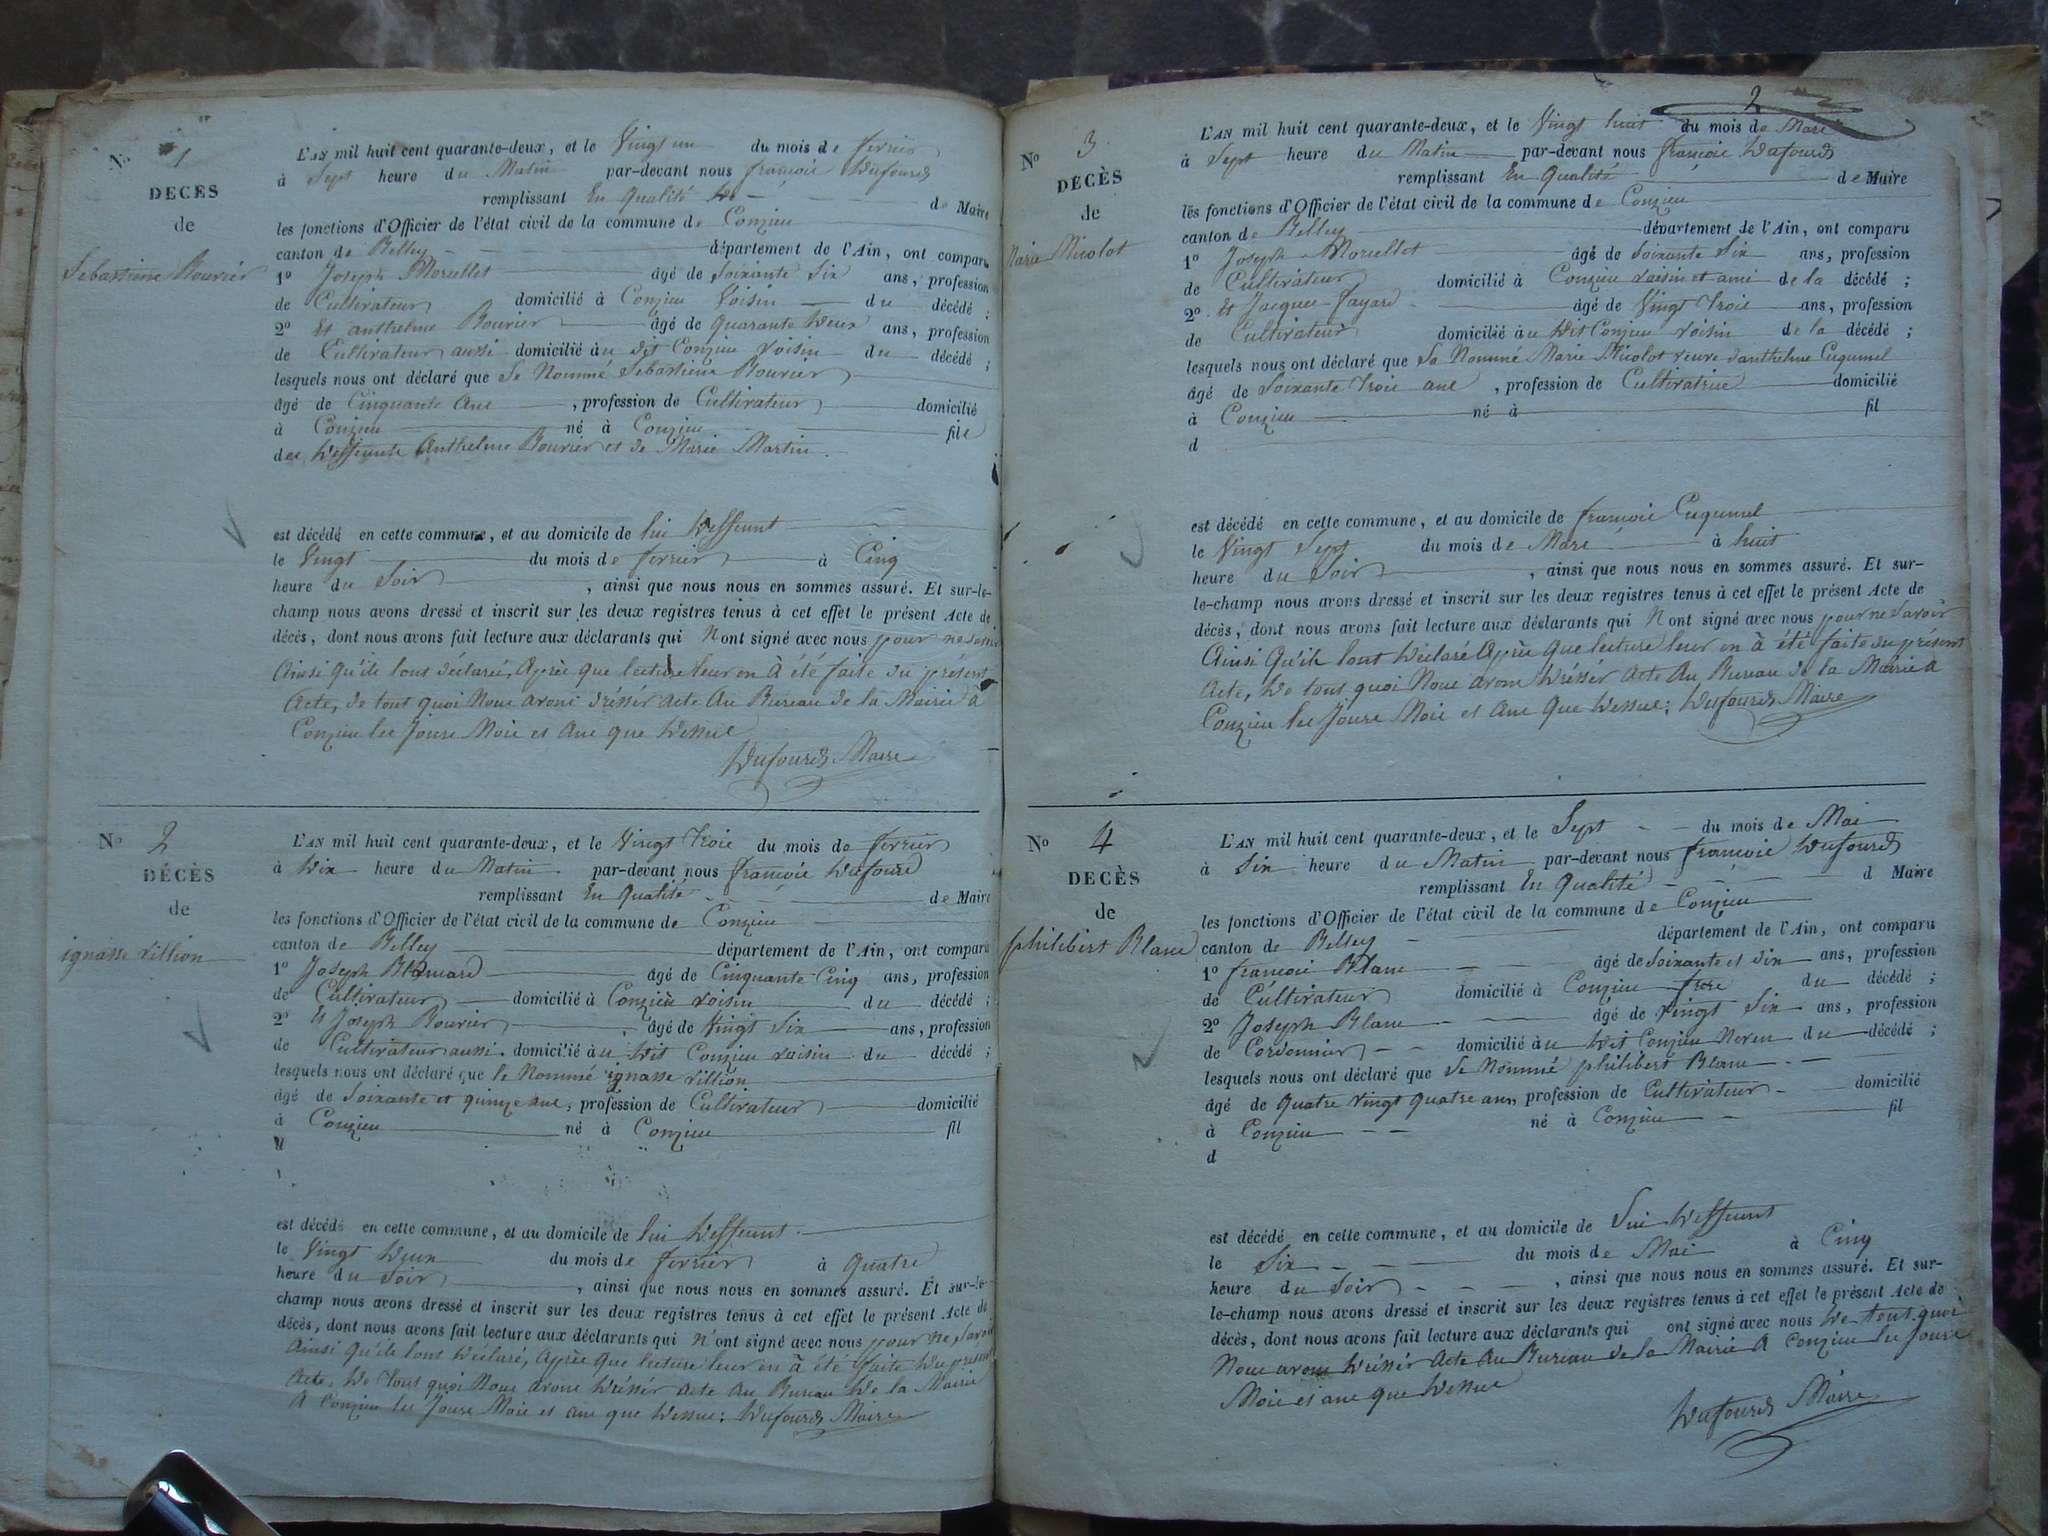 N° 1
DECÈS
de
Sebastienne Bouvier
L'AN mil huit cent quarante-deux, et le Vingt un du mois de fevrier
à Sept heure du Matin par-devant nous francois Dufourd
remplissant En Qualité de Maire
les fonctions d'Officier de l'état civil de la commune de Conzieu
canton de Belley département de l'Ain, ont comparu
1° Joseph Morcellet âgé de Soixante Six ans, profession
de Cultivateur domicilié à Conzieu Voisin du décédé ;
2° Et anthelme Bouvier âgé de quarante deux ans, profession
de Cultivateur aussi domicilié au dit Conzieu voisin du décédé ;
lesquels nous ont déclaré que Le Nommé Sebastienne Bouvier
âgé de Cinquante Ans , profession de Cultivateur domicilié
à Conzieu né à Conzieu fils
des deffunts Anthelme Bouvier et de Marie Martin
est décédé en cette commune, et au domicile de lui deffunt
le Vingt du mois de fevrier à Cinq
heure du Soir , ainsi que nous nous en sommes assuré. Et sur-le-
champ nous avons dressé et inscrit sur les deux registres tenus à cet effet le présent Acte de
décès, dont nous avons fait lecture aux déclarants qui N'ont signé avec nous pour ne savoir
Ainsi Qu'ils l'ont déclaré, Après que lecture leur en à été faite du présent
Acte, de tout quoi Nous avons drésser acte Au Bureau de la Mairie à
Conzieu les Jours Mois et Ans que dessus
Dufourd Maire
N° 2
DÉCÈS
de
ignasse Villion
L'AN mil huit cent quarante-deux, et le Vingt Trois du mois de fevrier
à Dix heure du Matin par-devant nous francois Dufourd
remplissant En Qualité de Maire
les fonctions d'Officier de l'état civil de la commune de Conzieu
canton de Belley département de l'Ain, ont comparu
1° Joseph âgé de Cinquante Cinq ans, profession
de Cultivateur domicilié à Conzieu voisin du décédé ;
2° Et Joseph Bouvier , âgé de Vingt Six ans, profession
de Cultivateur aussi domicilié au dit Conzieu voisin du décédé ;
lesquels nous ont déclaré que le Nommé ignasse Villion
âgé de Soixante et quinze ans, profession de Cultivateur domicilié
à Conzieu né à Conzieu fil
d
est décédé en cette commune, et au domicile de lui deffunt
le Vingt deux du mois de fevrier à Quatre
heure du Soir , ainsi que nous nous en sommes assuré. Et sur-le-
champ nous avons dressé et inscrit sur les deux registres tenus à cet effet le présent Acte de
décès, dont nous avons fait lecture aux déclarants qui N'ont signé avec nous pour ne savoir
Ainsi Qu'ils l'ont déclaré, Après Que lecture leur en à été faite du présent
Acte, De Tout quoi Nous avons drésser acte Au Bureau de la Mairie
A Conzieu les Jours Mois et ans que dessus: Dufourd Maire
2
N° 3
DÉCÈS
de
Marie Micolot
L'AN mil huit cent quarante-deux, et le Vingt huit du mois de Mars
à Sept heure du Matin par-devant nous francois Dufourd
remplissant En Qualité de Maire
les fonctions d'Officier de l'état civil de la commune de Conzieu
canton de Belley département de l'Ain, ont comparu
1° Joseph Morcellet âgé de Soixante Six ans, profession
de Cultivateur domicilié à Conzieu voisin et ami de la décédé ;
2° Et Jacques fayard âgé de Vingt Trois ans, profession
de Cultivateur domicilié au dit Conzieu voisin de la décédé ;
lesquels nous ont déclaré que La Nommé Marie Micolot veuve d'anthelme Cuquemel
âgé de Soixante Trois ans , profession de Cultivatrice domicilié
à Conzieu né à fil
d
est décédé en cette commune, et au domicile de francois Cuquemel
le Vingt Sept du mois de Mars à huit
heure du Soir , ainsi que nous nous en sommes assuré. Et sur-
le-champ nous avons dressé et inscrit sur les deux registres tenus à cet effet le présent Acte de
décès, dont nous avons fait lecture aux déclarants qui N'ont signé avec nous pour ne savoir
Ainsi Qu'ils l'ont déclaré Après Que lecture leur en à été faite du présent
Acte, De tout quoi Nous avons drésser Acte Au Bureau de la Mairie A
Conzieu les Jours Mois et Ans Que dessus: Dufourd Maire
N° 4
DECÈS
de
philibert Blanc
L'AN mil huit cent quarante-deux, et le Sept du mois de Mai
à Six heure du Matin par-devant nous francois Dufourd
remplissant En Qualité d Maire
les fonctions d'Officier de l'état civil de la commune de Conzieu
canton de Belley département de l'Ain, ont comparu
1° francois Blanc âgé de Soixante et dix ans, profession
de Cultivateur domicilié à Conzieu frere du décédé ;
2° Joseph Blanc âgé de Vingt Six ans, profession
de Cordonnier domicilié au dit Conzieu Neveu du décédé ;
lesquels nous ont déclaré que Le Nommé philibert Blanc
âgé de Quatre vingt quatre ans, profession de Cultivateur domicilié
à Conzieu né à Conzieu fil
d
est décédé en cette commune, et au domicile de Lui deffunt
le Six du mois de Mai à Cinq
heure du Soir , ainsi que nous nous en sommes assuré. Et sur-
le-champ nous avons dressé et inscrit sur les deux registres tenus à cet effet le présent Acte de
décès, dont nous avons fait lecture aux déclarants qui ont signé avec nous De tout quoi
Nous avons drésser Acte Au Bureau de la Mairie A Conzieu les Jours
Mois et ans que dessus
Dufourd Maire